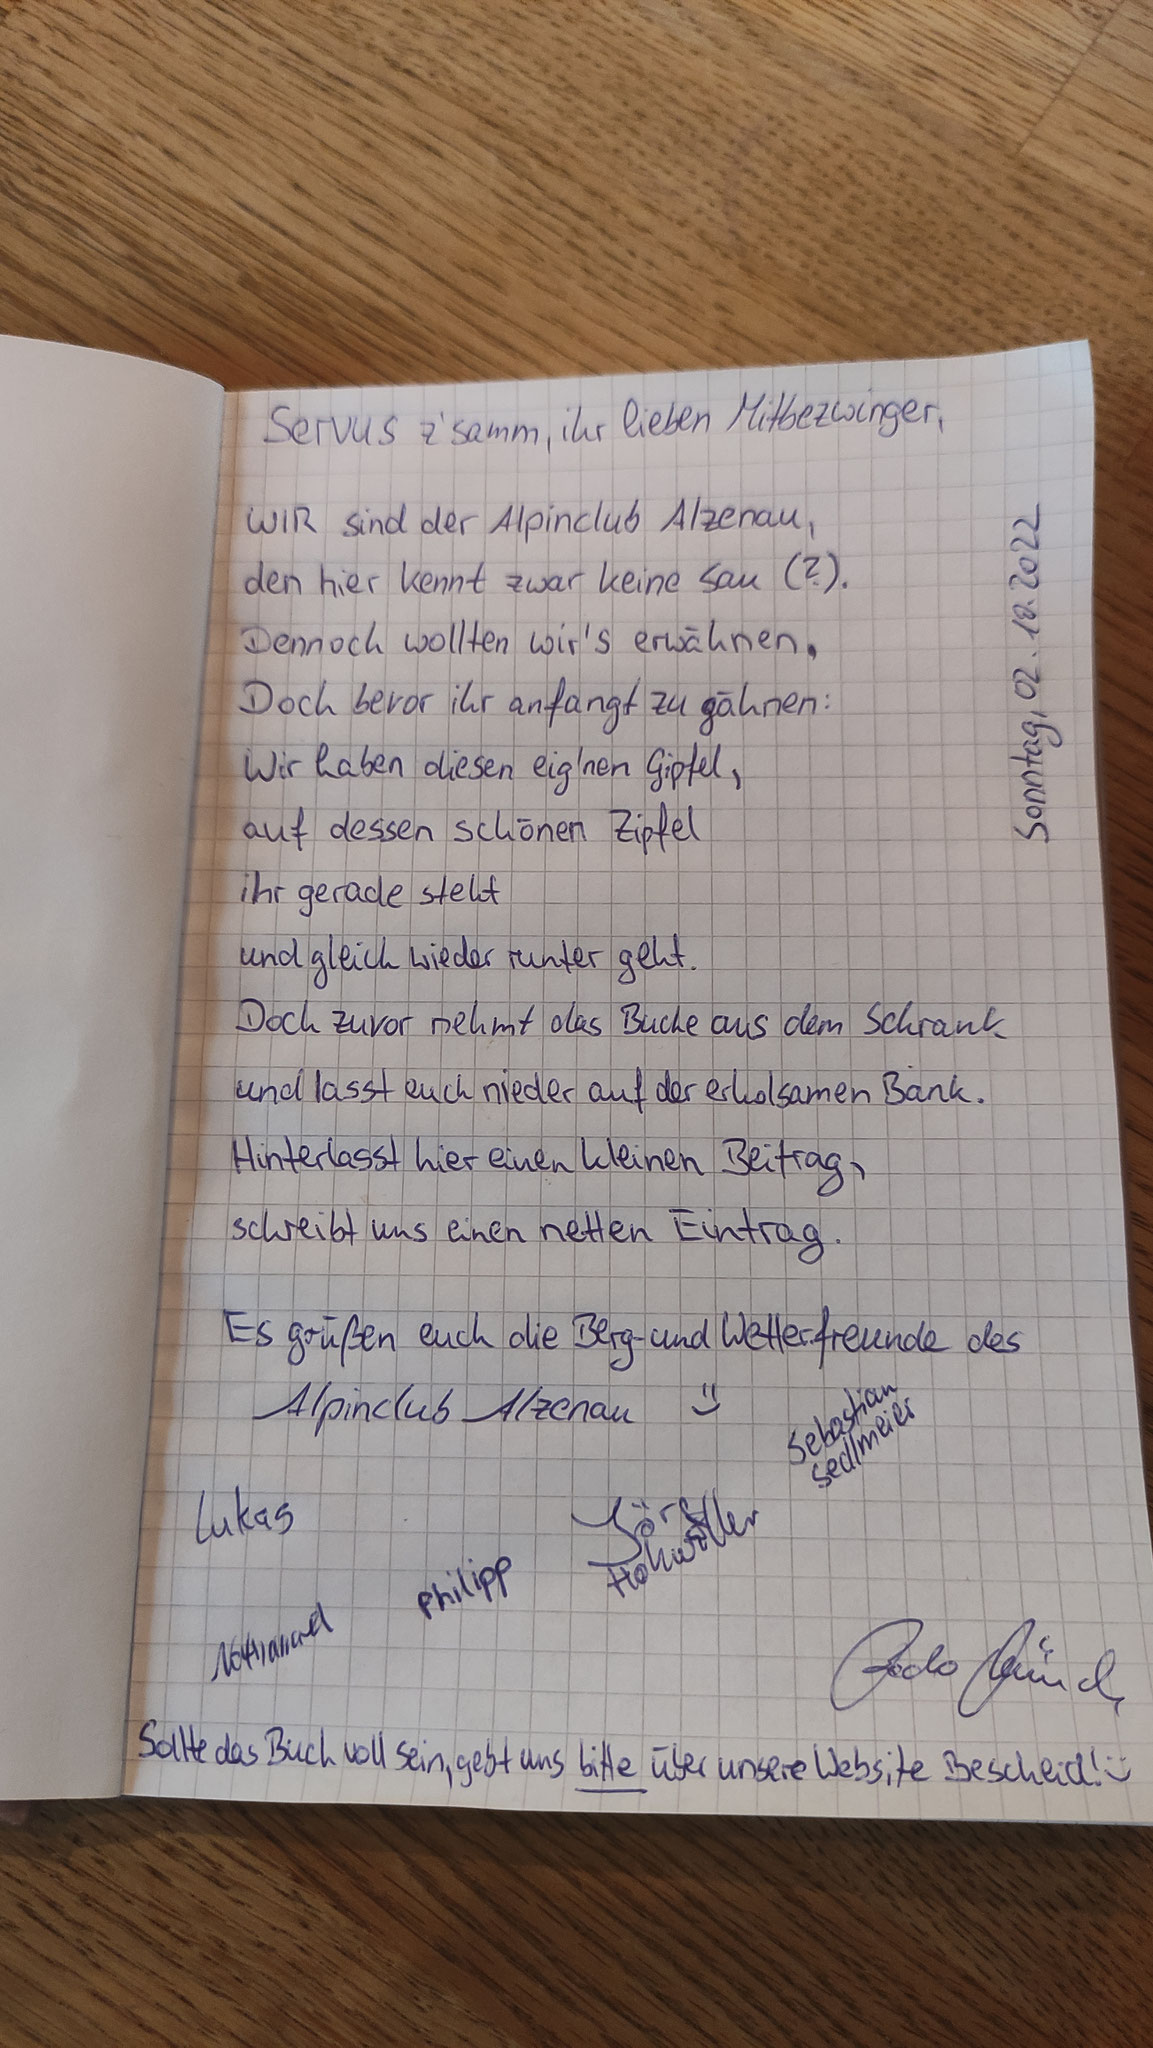 Servus z'samm, ihr lieben Mitbezwinger,
WIR sind der Alpinclub Alzenau,
den hier kennt zwar keine Sau (?).
Dennoch wollten wir's erwähnen,
Doch bevor ihr anfangt zu gähnen:
Wir haben diesen eig'nen Gipfel,
auf dessen schönen Zipfel
ihr gerade steht
und gleich wieder runter geht.
Doch zuvor nehmt das Buche aus dem Schrank
und lasst euch nieder auf der erholsamen Bank.
Hinterlasst hier einen kleinen Beitrag,
schreibt uns einen netten Eintrag.
Sonntag, 02.10.2022
Es grüßen euch die Berg- und Wetterfreunde des
Alpinclub Alzenau
Sebastian
Sedlmeier
Lukas
Jörg
Philipp
Sollte das Buch voll sein, gebt uns bitte über unsere Website Bescheid!